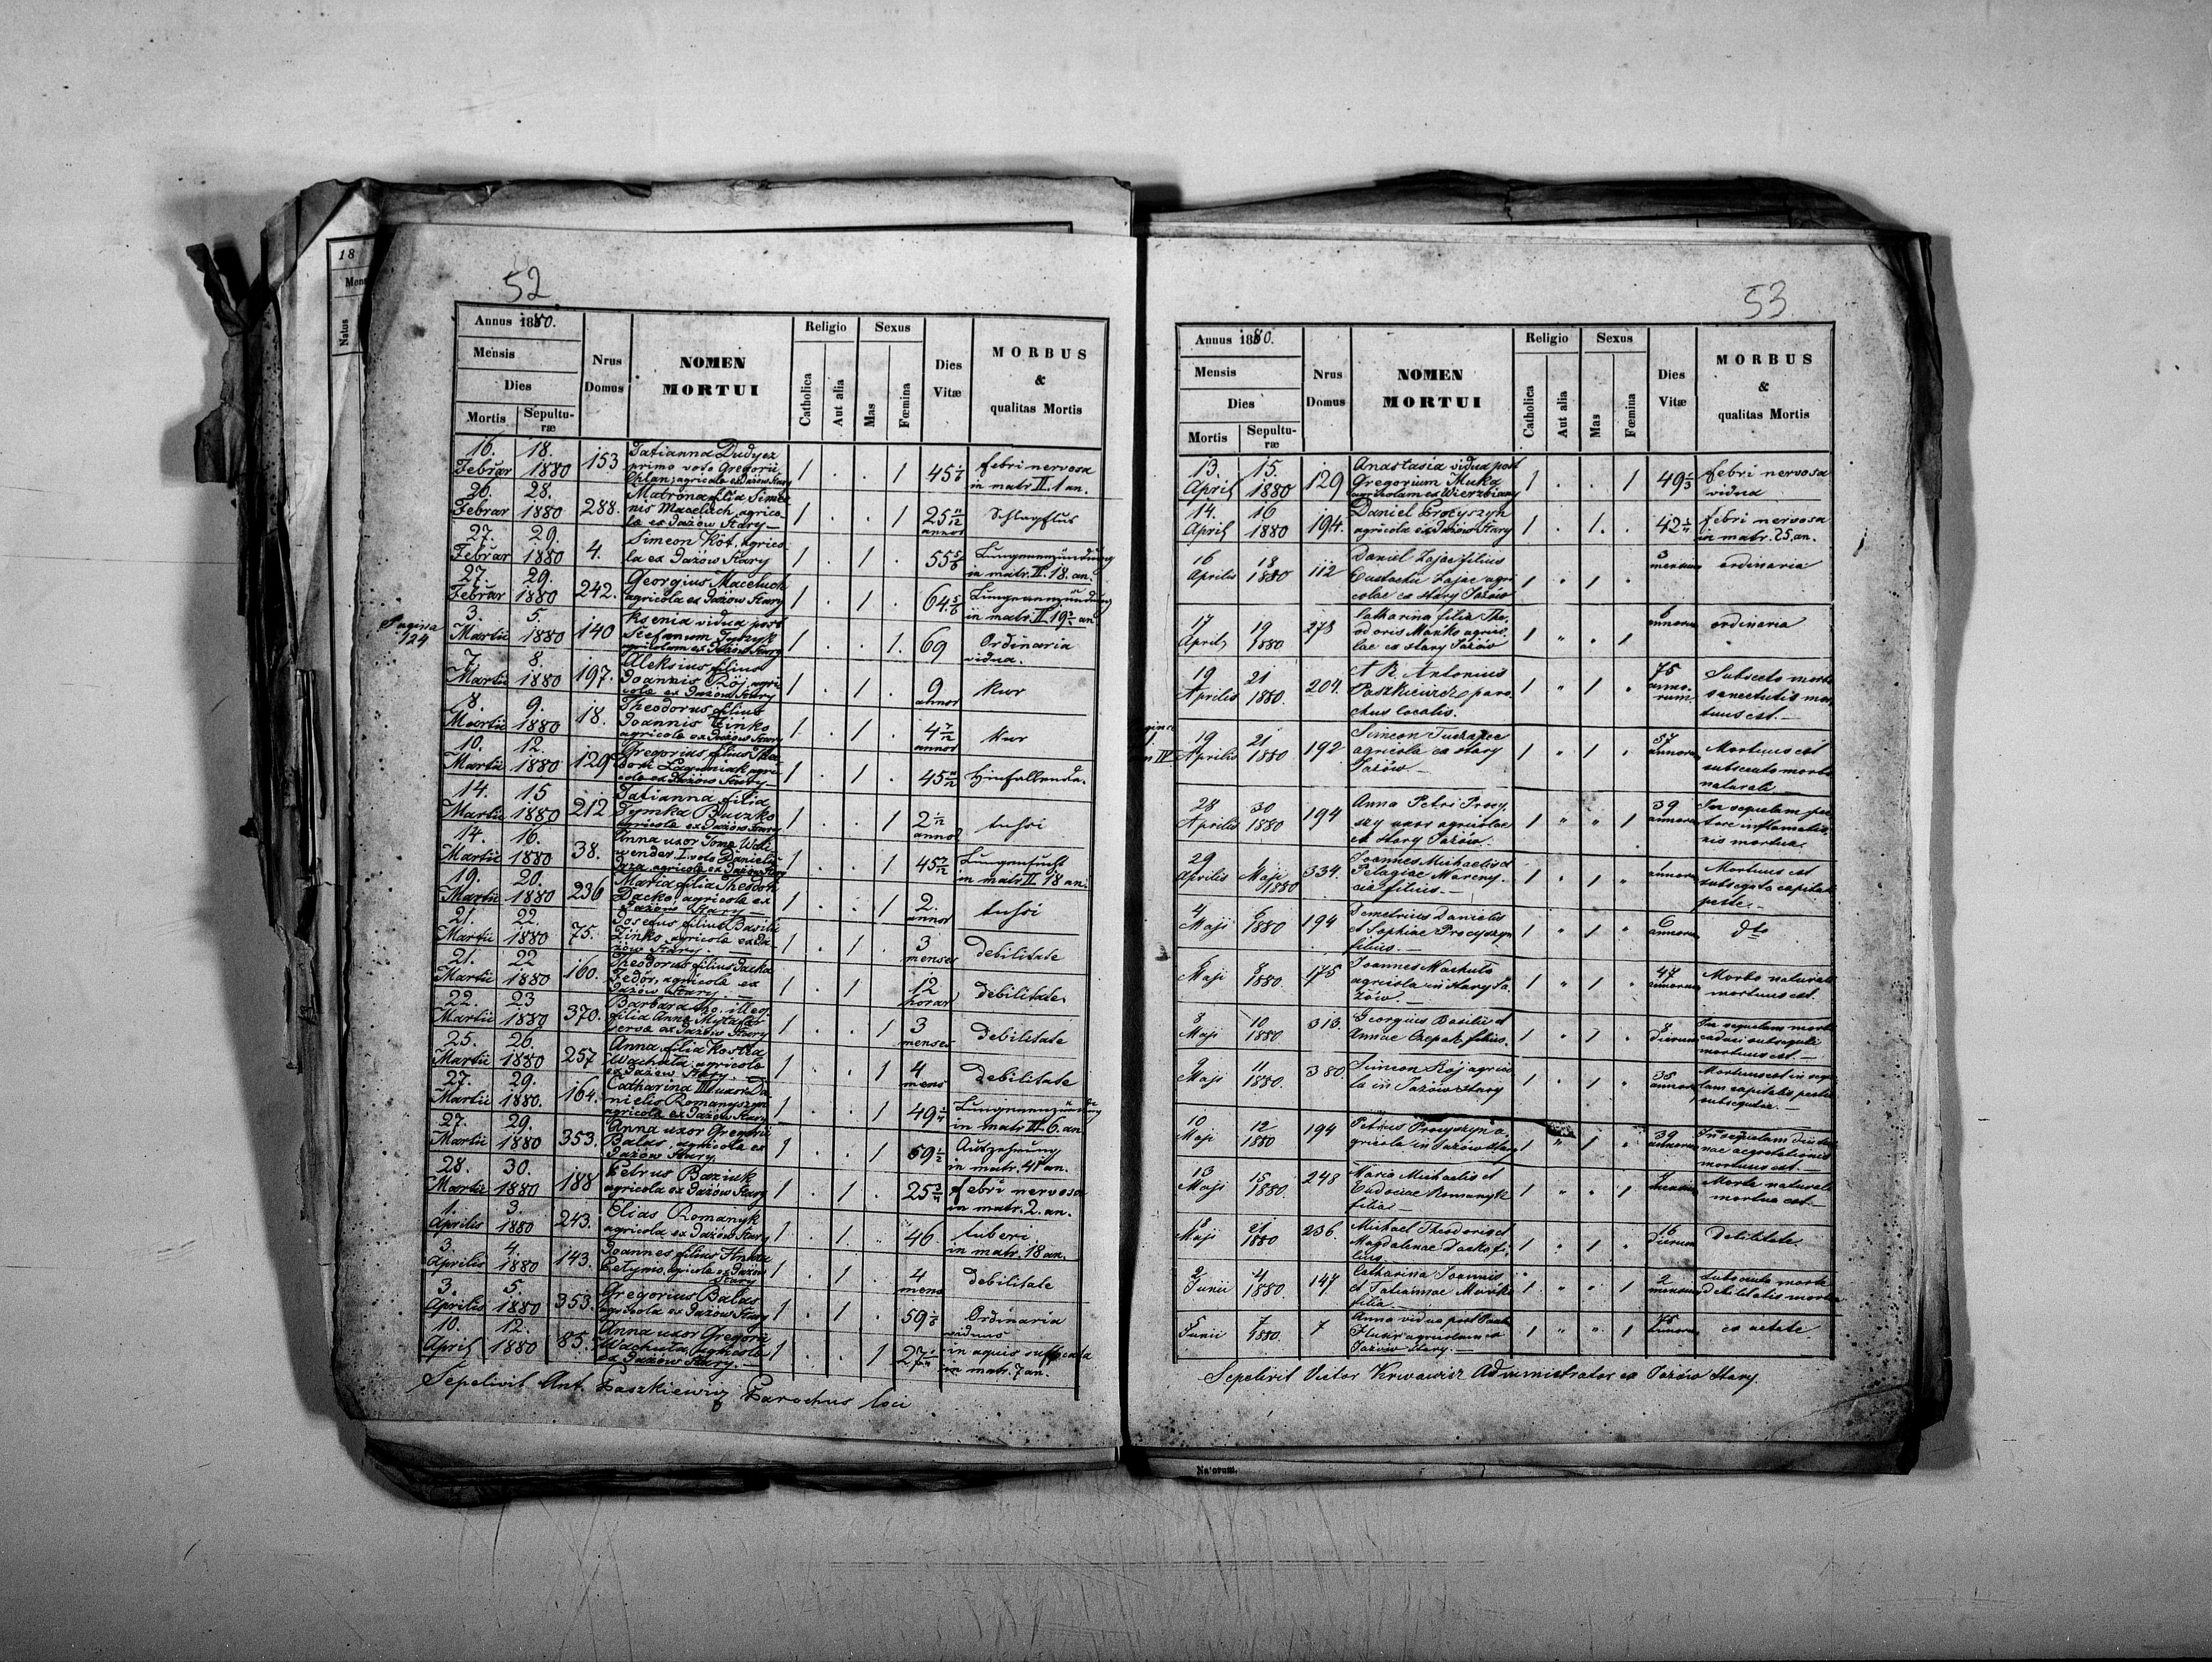 52
Annus 1880.
Mensis
Dies
Mortis
Sepulturæ
Nrus Domus
NOMEN MORTUI
Religio
Catholica
Aut alia
Sexus
Mas
Fœmina
Dies Vitæ
MORBUS & qualitas Mortis
16. Februar 18. 1880 153 Tatianna Dudycz 1 . . 1 45 febri nervosa
primo voto Gregorii in matr. II. 1 an.
agricola ex Jażów Stary
26. Februar 28. 1880 288. Matrona filia Simeo- 1 . . 1 25 11/12 Schlagflus
nis Maceluch agrico- annor
la ex Jażów Stary
27. Februar 29. 1880 4. Simeon Kót. agrico- 1 . 1 . 55 5/6 Lungenenzündung
la ex Jażów Stary in matr. II. 18. an.
27. Februar 29. 1880 242. Georgius Maceluch 1 . 1 . 64 5/6 Lungenenzündung
agricola ex Jażów Stary in matr. II 19 an
Pagina 124
3. Martii 5. 1880 140 Ksenia vidua post 1 . . 1. 69 Ordinaria
Stefanum vidua.
agricolam ex Jażów Stary
7. Martii 8. 1880 197. Aleksius filius 1 . 1 . 9 annor kur
Joannis Rój agri-
cola ex Jażów Stary
8. Martii 9. 1880 18. Theodorus filius 1 . 1 . 4 7/12 annor kur
Joannis Zinko
agricola ex Jażów Stary
10. Martii 12. 1880 129 Gregorius filius 1 . 1 . 45 Hinfallende.
agri-
cola ex Jażów Stary
14. Martii 15 1880 212 Tatianna filia 1 . . 1 2 annor tussi
Tymka Buczko
agricola ex Jażów Stary
14. Martii 16. 1880 38. Anna uxor Toma 1 . . 1 45 Lungensucht
I. voto Danielis in matr. II 18 an.
agricola ex Jażów Stary
19. Martii 20. 1880 236 Maria filia Theodori 1 . . 1 2. annor tussi
Dacko, agricola ex
Jażów Stary
21. Martii 22. 1880 75. Josefus filius Basilii 1 . 1 . 3 menses debilitate
Zinko, agricola ex Ja-
żów Stary.
21. Martii 22 1880 160. Theodorus filius Jacka 1 . 1 12 horar debilitate
Fedór, agricola ex
Jażów Stary
22. Martii 23 1880 370. Barbara illeg. 1 . . 1 3 menses debilitate
filia Anna
ex Jażów Stary
25. Martii 26. 1880 257 Anna filia Kostka 1 . . 1 4 mens debilitate
Wachuta, agricola
ex Jażów Stary
27. Martii 29. 1880. 164. Catharina III uxor Da- 1 . . 1 49 Lungenenzündung
nielis Romanyszyn in matr. III. 6. an
agricola ex Jażów Stary
27. Martii 29. 1880 353. Anna uxor Gregorii 1 . . 1 59 1/2 Auszehrung
Balas, agricola ex in matr. 41 an.
Jażów Stary.
28. Martii 30. 1880 188 Petrus Baziuk 1 . 1 . 25 3/4 febri nervosa
agricola ex Jażów Stary in matr. 2. an.
1. Aprilis 3. 1880 243. Elias Romanyk 1 . 1 46 tuberi
agricola ex Jażów Stary in matr. 18 an.
3. Aprilis 4. 1880 143. Joannes filius Hnata 1 . 1 . 4 mens debilitate
agricola ex Jażów
Stary
3. Aprilis 5. 1880 353. Gregorius Balas 1 . 1 . 59 Ordinaria
agricola ex Jażów Stary viduus
10. April 12. 1880 85. Anna uxor Gregorii 1 . . 1 27 in aquis suffocata
Wachuta, agricola in matr. 7 an.
ex Jażów Stary.
Sepelivit Ant. Paszkiewicz Parochus loci
53
Annus 1880.
Mensis
Dies
Mortis
Sepulturæ
Nrus Domus
NOMEN MORTUI
Religio
Catholica
Aut alia
Sexus
Mas
Fœmina
Dies Vitæ
MORBUS & qualitas Mortis
13. April 15. 1880 129 Anastasia vidua post 1 . . 1 49 febri nervosa
Gregorium Muka vidua
agricolam ex Wierzbiany
14. April 16 1880 194. Daniel Procyszyn 1 . 1. . 42 febri nervosa
agricola ex Jażów Stary in matr. 25. an.
16 Aprilis 18 1880 112 Daniel Zajac filius 1 " 1 . 3 mensium ordinaria
Eustachii Zajac agri
colae ex stary Jażów
17 April 19 1880 278 Catharina filia The- 1 " . 1 6 annorum ordinaria
odoris Mańko agrico-
lae ex stary Jażów
19 Aprilis 21 1880. 204. A R. Antonius 1 " 1 . 75 annorum Subsecto morbo
Paszkiewicz paro senectutis mor
chus localis. tuus est.
19 Aprilis 21 1880 192 Simeon 1 " 1 . 57 annorum Mortuus est
agricola ex stary subsecuto morbo
Jażów. naturali
28 Aprilis 30 1880 194 Anna Petri Procy- 1 " " 1 39 annorum In sequelam pec
szy uxor agricolae tore inflamatio
ex stary Jażów. nis mortua.
29 Aprilis 1 Maji 1880 334. Joannes Michaelis et 1 . 1 " 1 annorum Mortuus est
Pelagiae filius. capitali
peste.
4 Maji 6 1880 194 Demetrius Danielis 1 " 1 . 6 annorum dto
et Sophiae Procyszyn
filius.
6 Maji 8 1880. 175 Joannes Wachuta 1 " 1 . 47 annorum Morbo naturali
agricola in stary Ja- mortuus est.
żów.
8 Maji 10 1880 313. Georgius Basilii et 1 " 1 . 8 dierum In sequelam morbi
Annae Czepak filius. caduci subsequti
mortuus est.
9 Maji 11 1880. 380. Simeon Rój agrico 1 . 1 . 35 annorum Mortuus est in seque
la in Jażów stary lam capitalis pestis
subsequtae.
10 Maji 12 1880 194 Petrus Procyszyn a- 1 " 1 . 39 annorum In sequelam diutur
gricola in Jażów Stary nae aegrotationis
mortuus est.
13 Maji 15 1880. 248 Maria Michaelis et 1 " . 1 Morbo naturali
Eudociae Romanyk mortua est.
filia
Maji 21 1880 236. Michael Theodoris et 1 . 1 . 16 dierum Debilitate.
Magdalenae Dacko fi-
lius.
2 Junii 4 1880. 147 Catharina Joannis 1 . " 1 2 mensium Subsecuta morte
et Tatiannae debilitatis mortua
filia.
5 Junii 7 1880. 7 Anna vidua post 1 " " 1 75 annorum ex aetate.
agricolam ex
Jażów Stary.
Sepelivit Victor Administrator ex Jażów Stary.
18
Natus
Natorum.